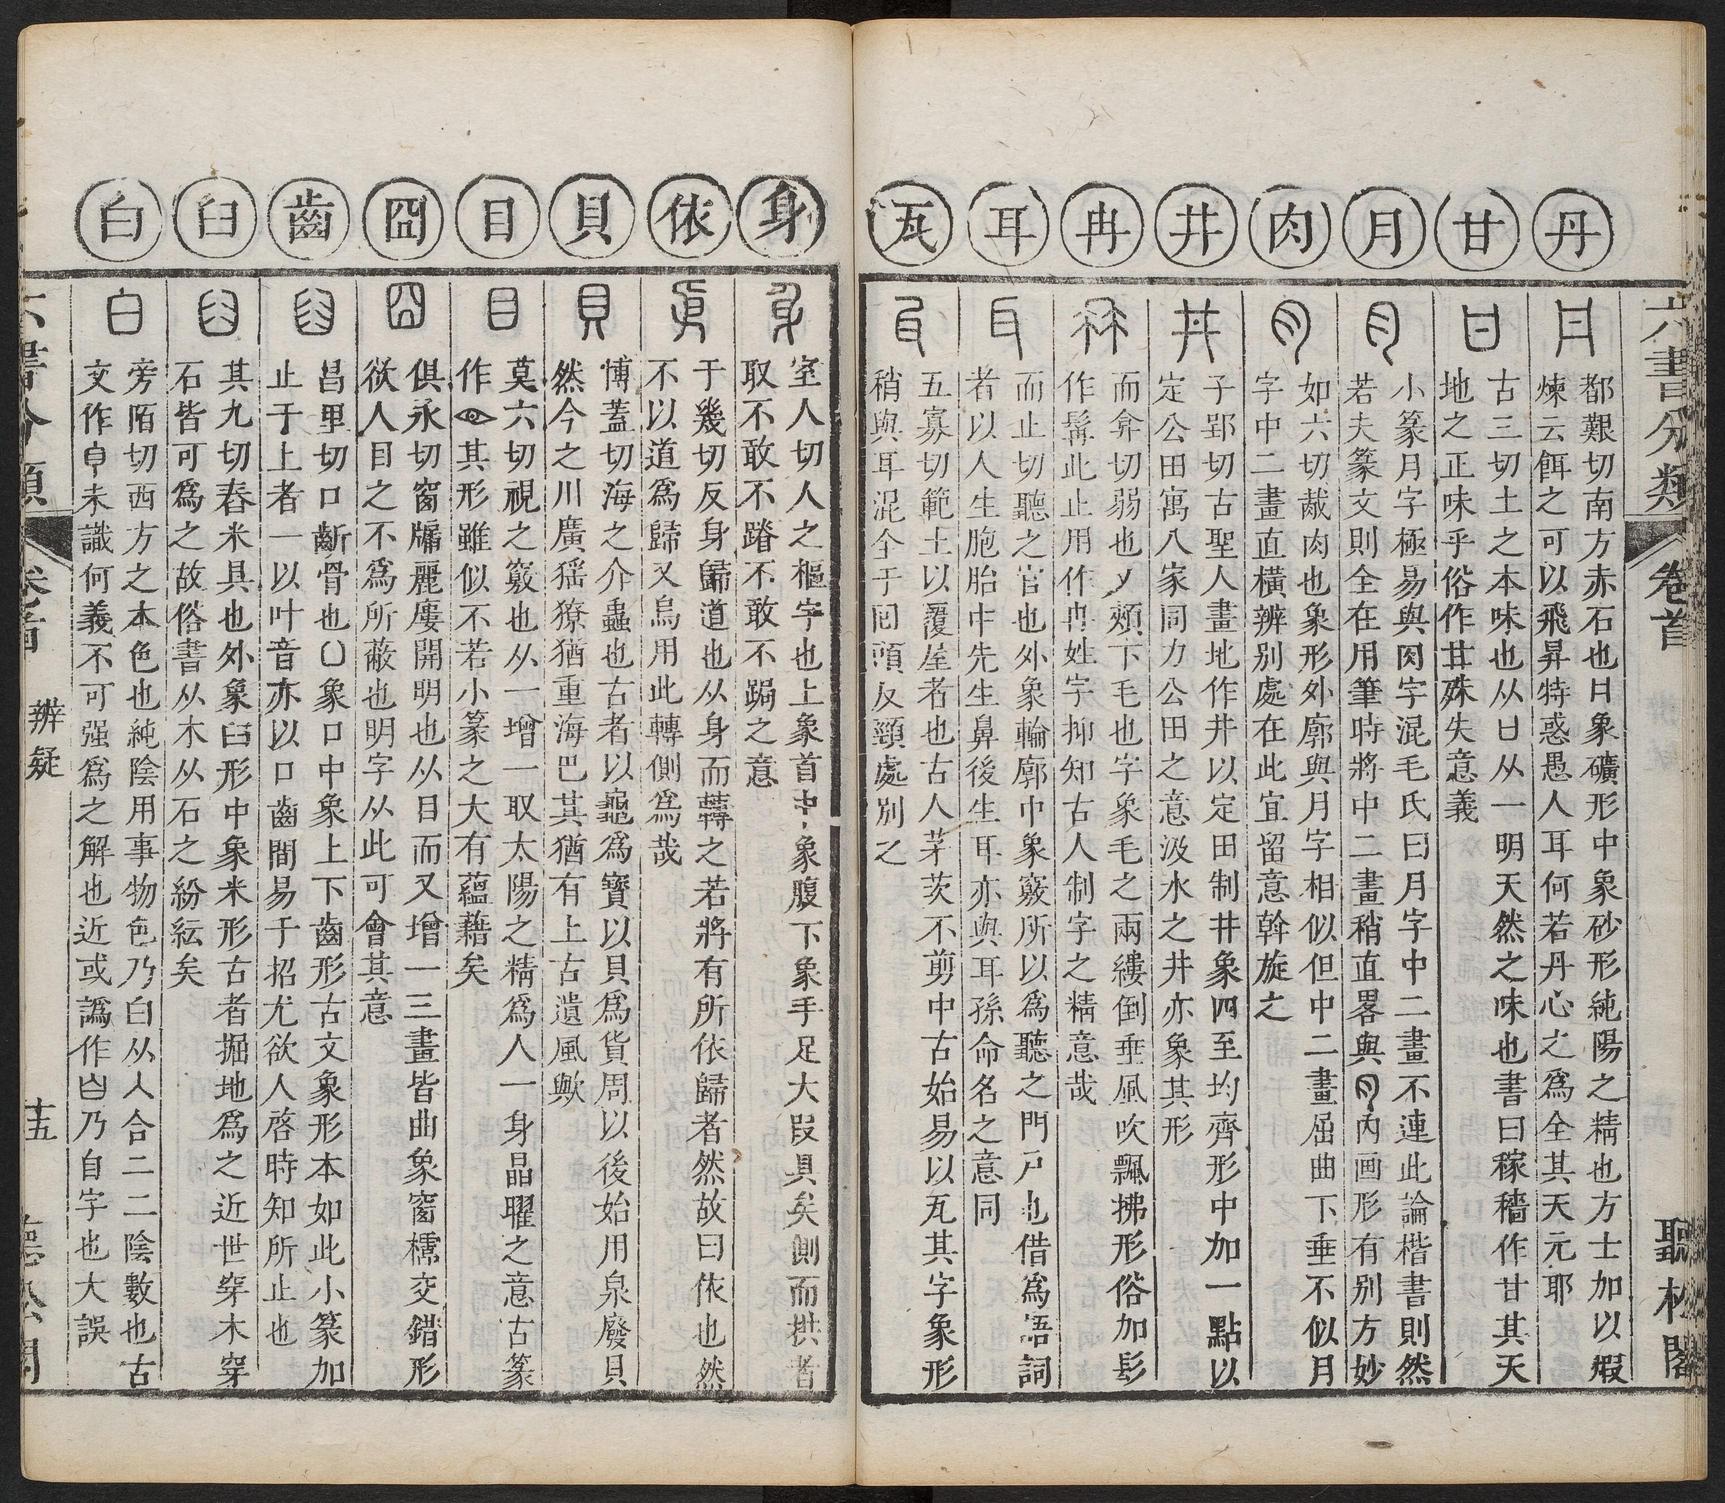 六書分類
卷首
聽松閣
丹
都艱切南方赤石也日象礦形中象砂形純陽之精也方士加以煆
煉云餌之可以飛昇特惑愚人耳何若丹心之為全其天元耶
甘
古三切土之本味也从日从一明天然之味也書曰稼穡作甘其天
地之正味乎俗作甘殊失意義
月
小篆月字極易與肉字混毛氏曰月字中二畫不連此論楷書則然
若夫篆文則全在用筆時將中二畫稍直畧與內画形有别方妙
肉
如六切胾肉也象形外廓與月字相似但中二畫屈曲下垂不似月
字中二畫直橫辨别處在此宜留意斡旋之
井
子郢切古聖人畫地作井以定田制井象四至均齊形中加一點以
定公田寓八家同力公田之意汲水之井亦象其形
冉
而弇切弱也乄頰下毛也字象毛之兩縷倒垂風吹飄拂形俗加髟
作髯此止用作冉姓字抑知古人制字之精意哉
耳
而止切聽之官也外象輪廓中象竅所以為聽之門戸也借為語詞
者以人生胞胎中先生鼻後生耳耳亦與耳孫命名之意同
瓦
五寡切範土以覆屋者也古人茅茨不剪中古始易以瓦其字象形
稍與耳混全于囘頭反頸處别之
身
室人切人之樞宇也上象首中象腹下象手足大叚具矣側而拱者
取不敢不蹐不敢不跼之意
依
于幾切反身歸道也从身而轉之若將有所依歸者然故曰依也然
不以道為歸又烏用此轉側為哉
貝
博蓋切海之介蟲也古者以龜為寶以貝為貨周以後始用泉廢貝
然今之川廣猺獠猶重海巴其猶有上古遺風歟
目
莫六切視之竅也从一增一取太陽之精為人一身晶曜之意古篆
作其形雖似不若小篆之大有蘊藉矣
囧
俱永切窗牖麗廔開明也从目而又增一三畫皆曲象窗櫺交錯形
欲人目之不為所蔽也明字从此可會其意
齒
昌里切口齗骨也凵象口中象上下齒形古文象形本如此小篆加
止于上者一以叶音亦以口齒間易于招尤欲人啓時知所止也
臼
其九切舂米具也外象臼形中象米形古者掘地為之近世穿木穿
石皆可為之故俗書从木从石之紛紜矣
白
旁陌切西方之本色也純陰用事物色乃白从人合二二陰數也古
文作未識何義不可强為之解也近或譌作乃自字也大誤
六書分類
卷首
辨疑
十五
聽松閣